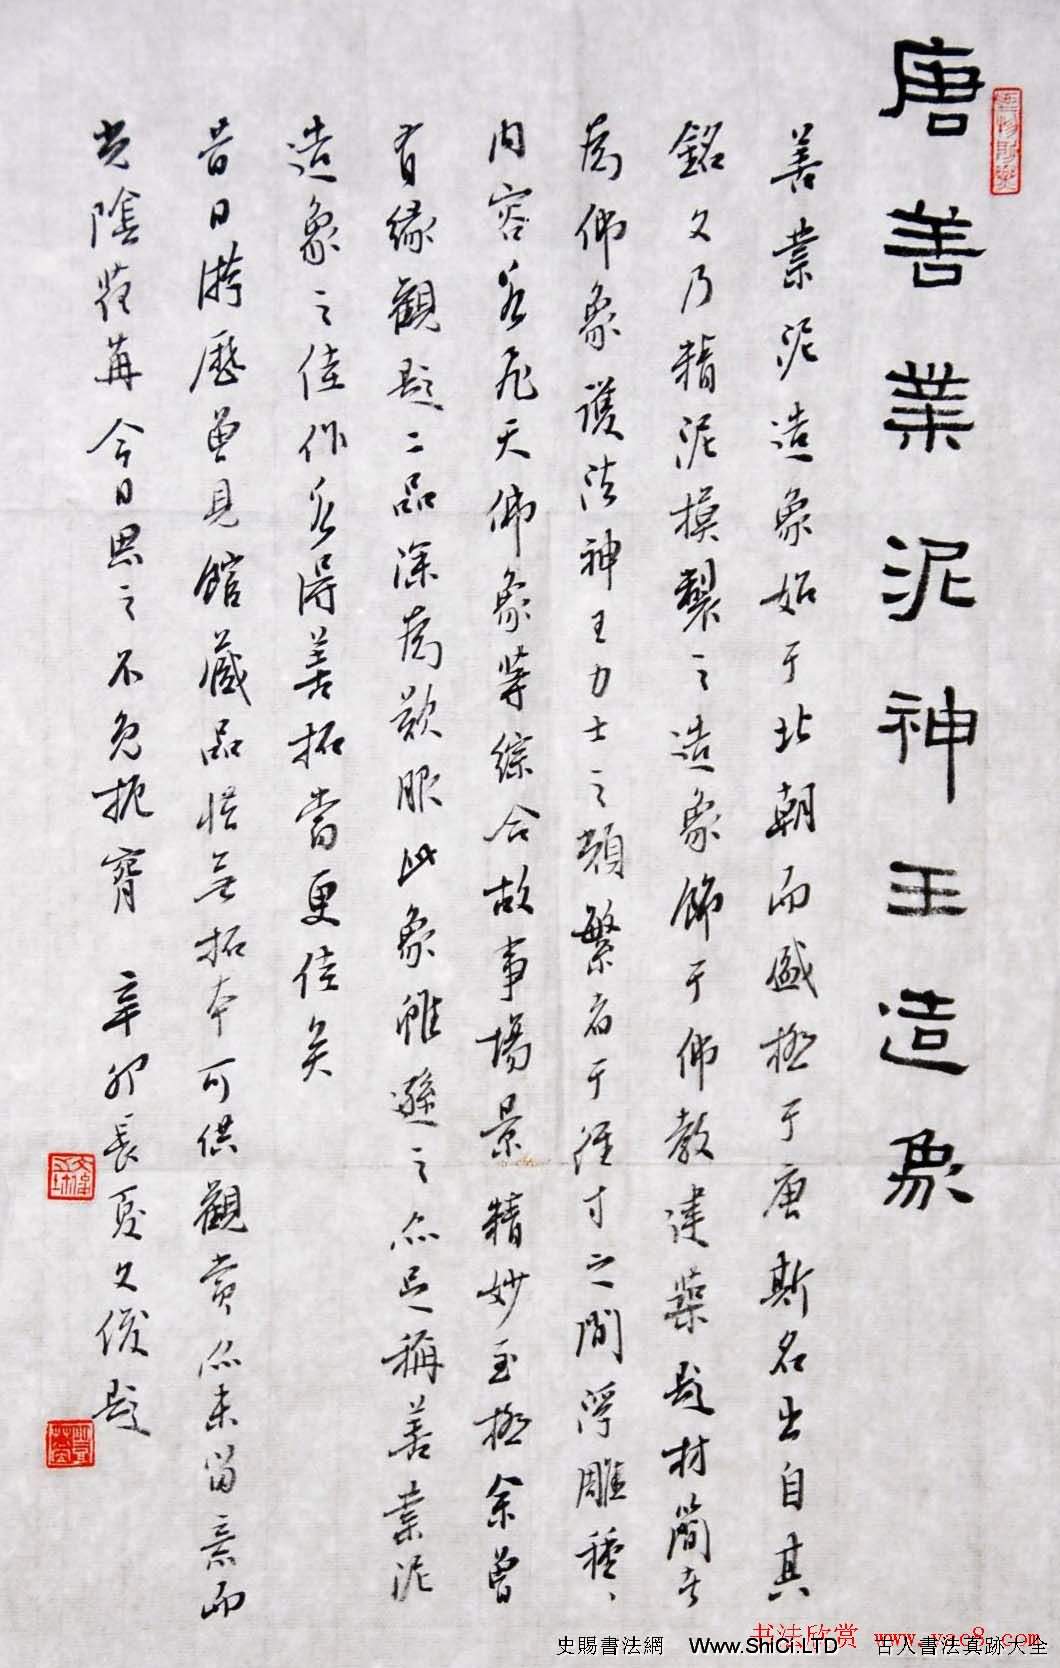 唐善業泥神王造象
善業泥造象始于北朝而盛極于唐斯名出自其
銘文乃精泥摸製之造象飾于佛教建築題材簡者
為佛象護法神王力士之類繁者于徑寸之間浮雕種、
內容若飛天佛象等綜合故事場景精妙至極余曾
有緣觀題二品深為歎服此象雖遜之亦足稱善業泥
造象之佳作若得善拓當更佳矣
昔日游歷曾見館藏品惜無拓本可供觀賞亦未留意而
光陰荏苒今日思之不免扼腕 辛卯長夏文俊題
书法欣赏 www.yac8.com
史賜書法網 Www.ShiCi.LTD 古人書法真跡大全